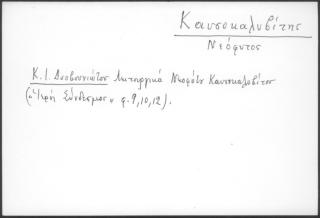 Καυσοκαλυβίτης
Νεόφυτος
Κ. Ι. Δυοβουνιώτου Λειτουργικά Νεοφύτου Καυσοκαλυβίτου
("Ιερός Σύνδεσμος" φ. 9, 10, 12).